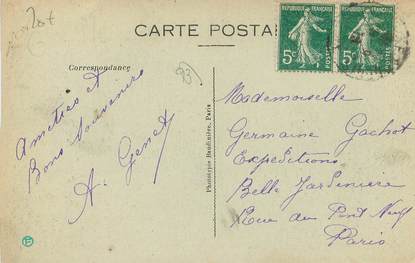 CARTE POSTA
Correspondance
Amitiés et
Bons Souvenirs
A. Genet
(93)
Phototypie Baudinière, Paris
REPUBLIQUE FRANÇAISE
5c
REPUBLIQUE FRANÇAISE
5c
Mademoiselle
Germaine Gachot
Expeditions
Belle Jardiniere
Rue du Pont Neuf
Paris